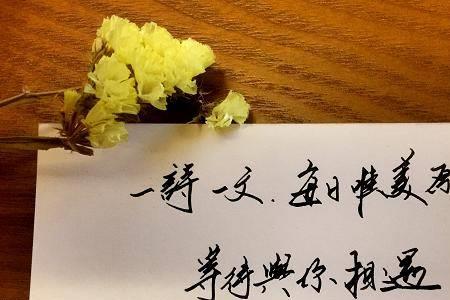 一詩一文.每日唯美原
等待與你相遇